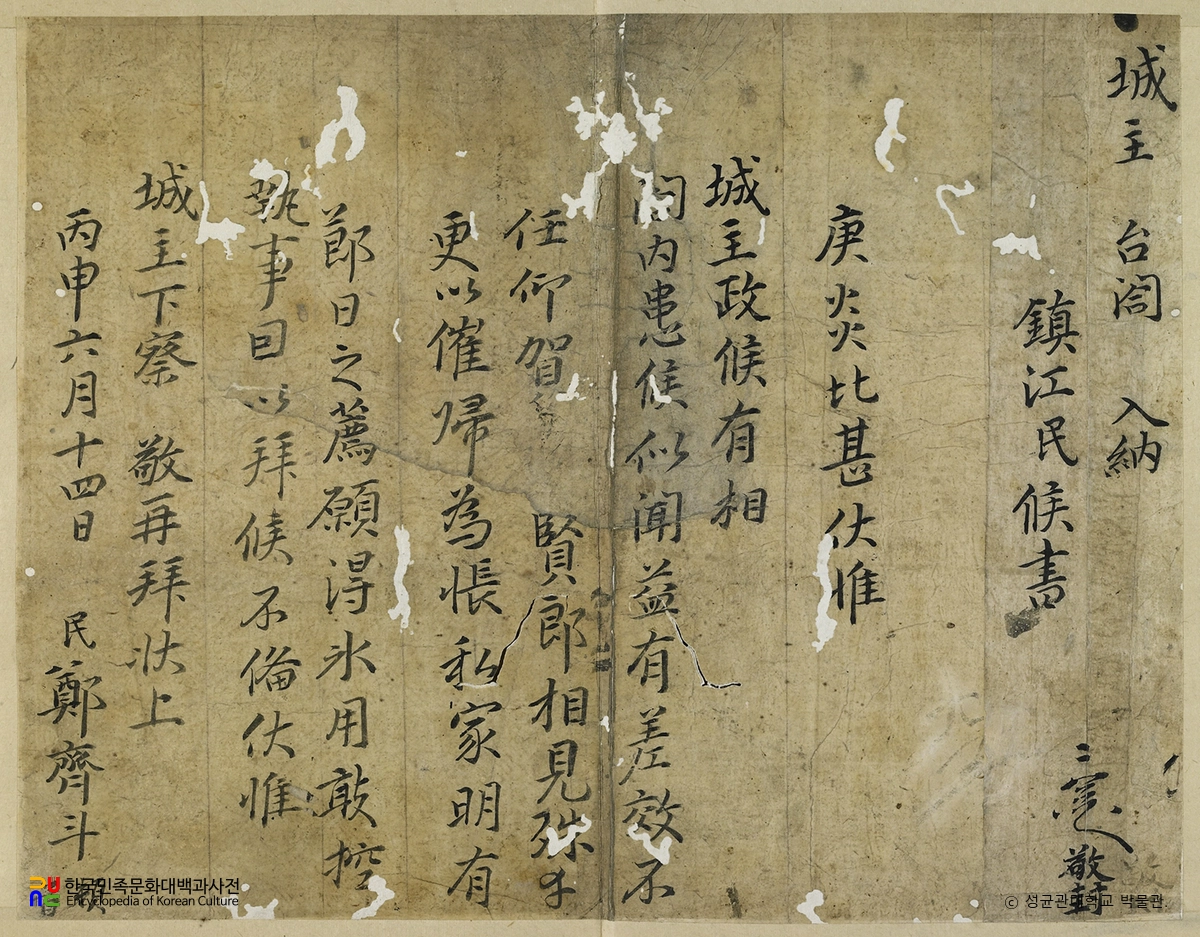 城主 台閤 入納
鎭江民候書
敬封
庚炎比甚伏惟
城主政候有相
閤内患候似聞益有差效不
任仰賀 賢郞相見殊
更以催歸為悵私家明有
節日之薦願得氷用敢控
執事因以拜候不備伏惟
城主下察 敬再拜狀上
丙申六月十四日 民鄭齊斗
한국민족문화대백과사전
Encyclopedia of Korean Culture
© 성균관대학교 박물관.